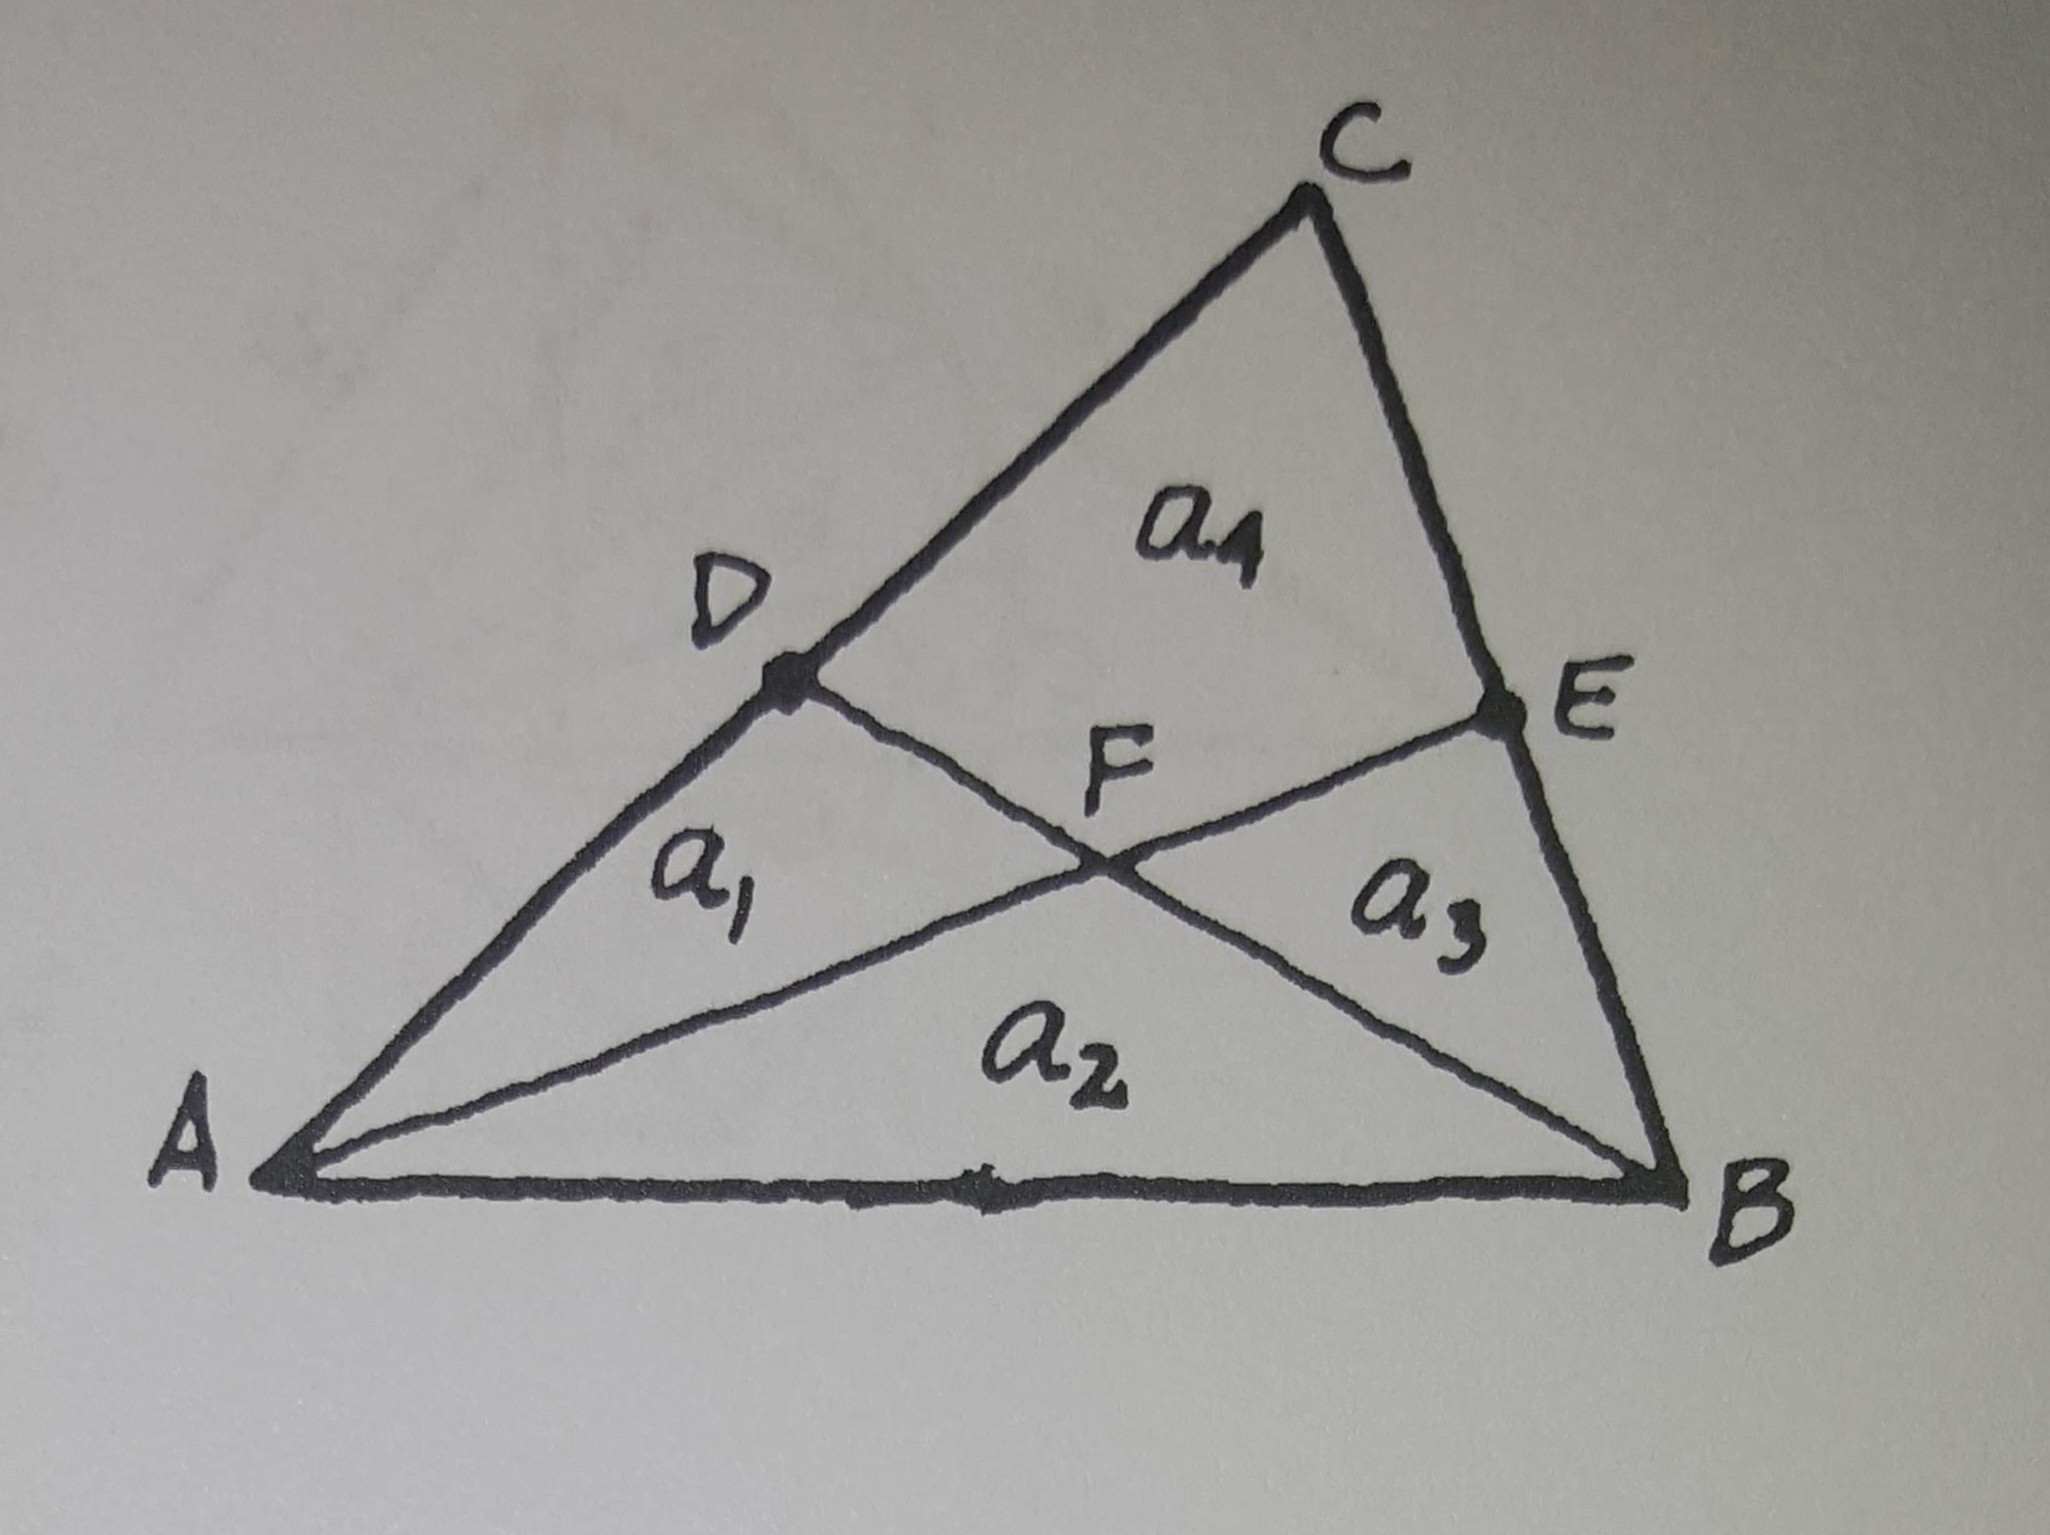 C
a₄
D
E
F
a₁
a₃
a₂
A
B